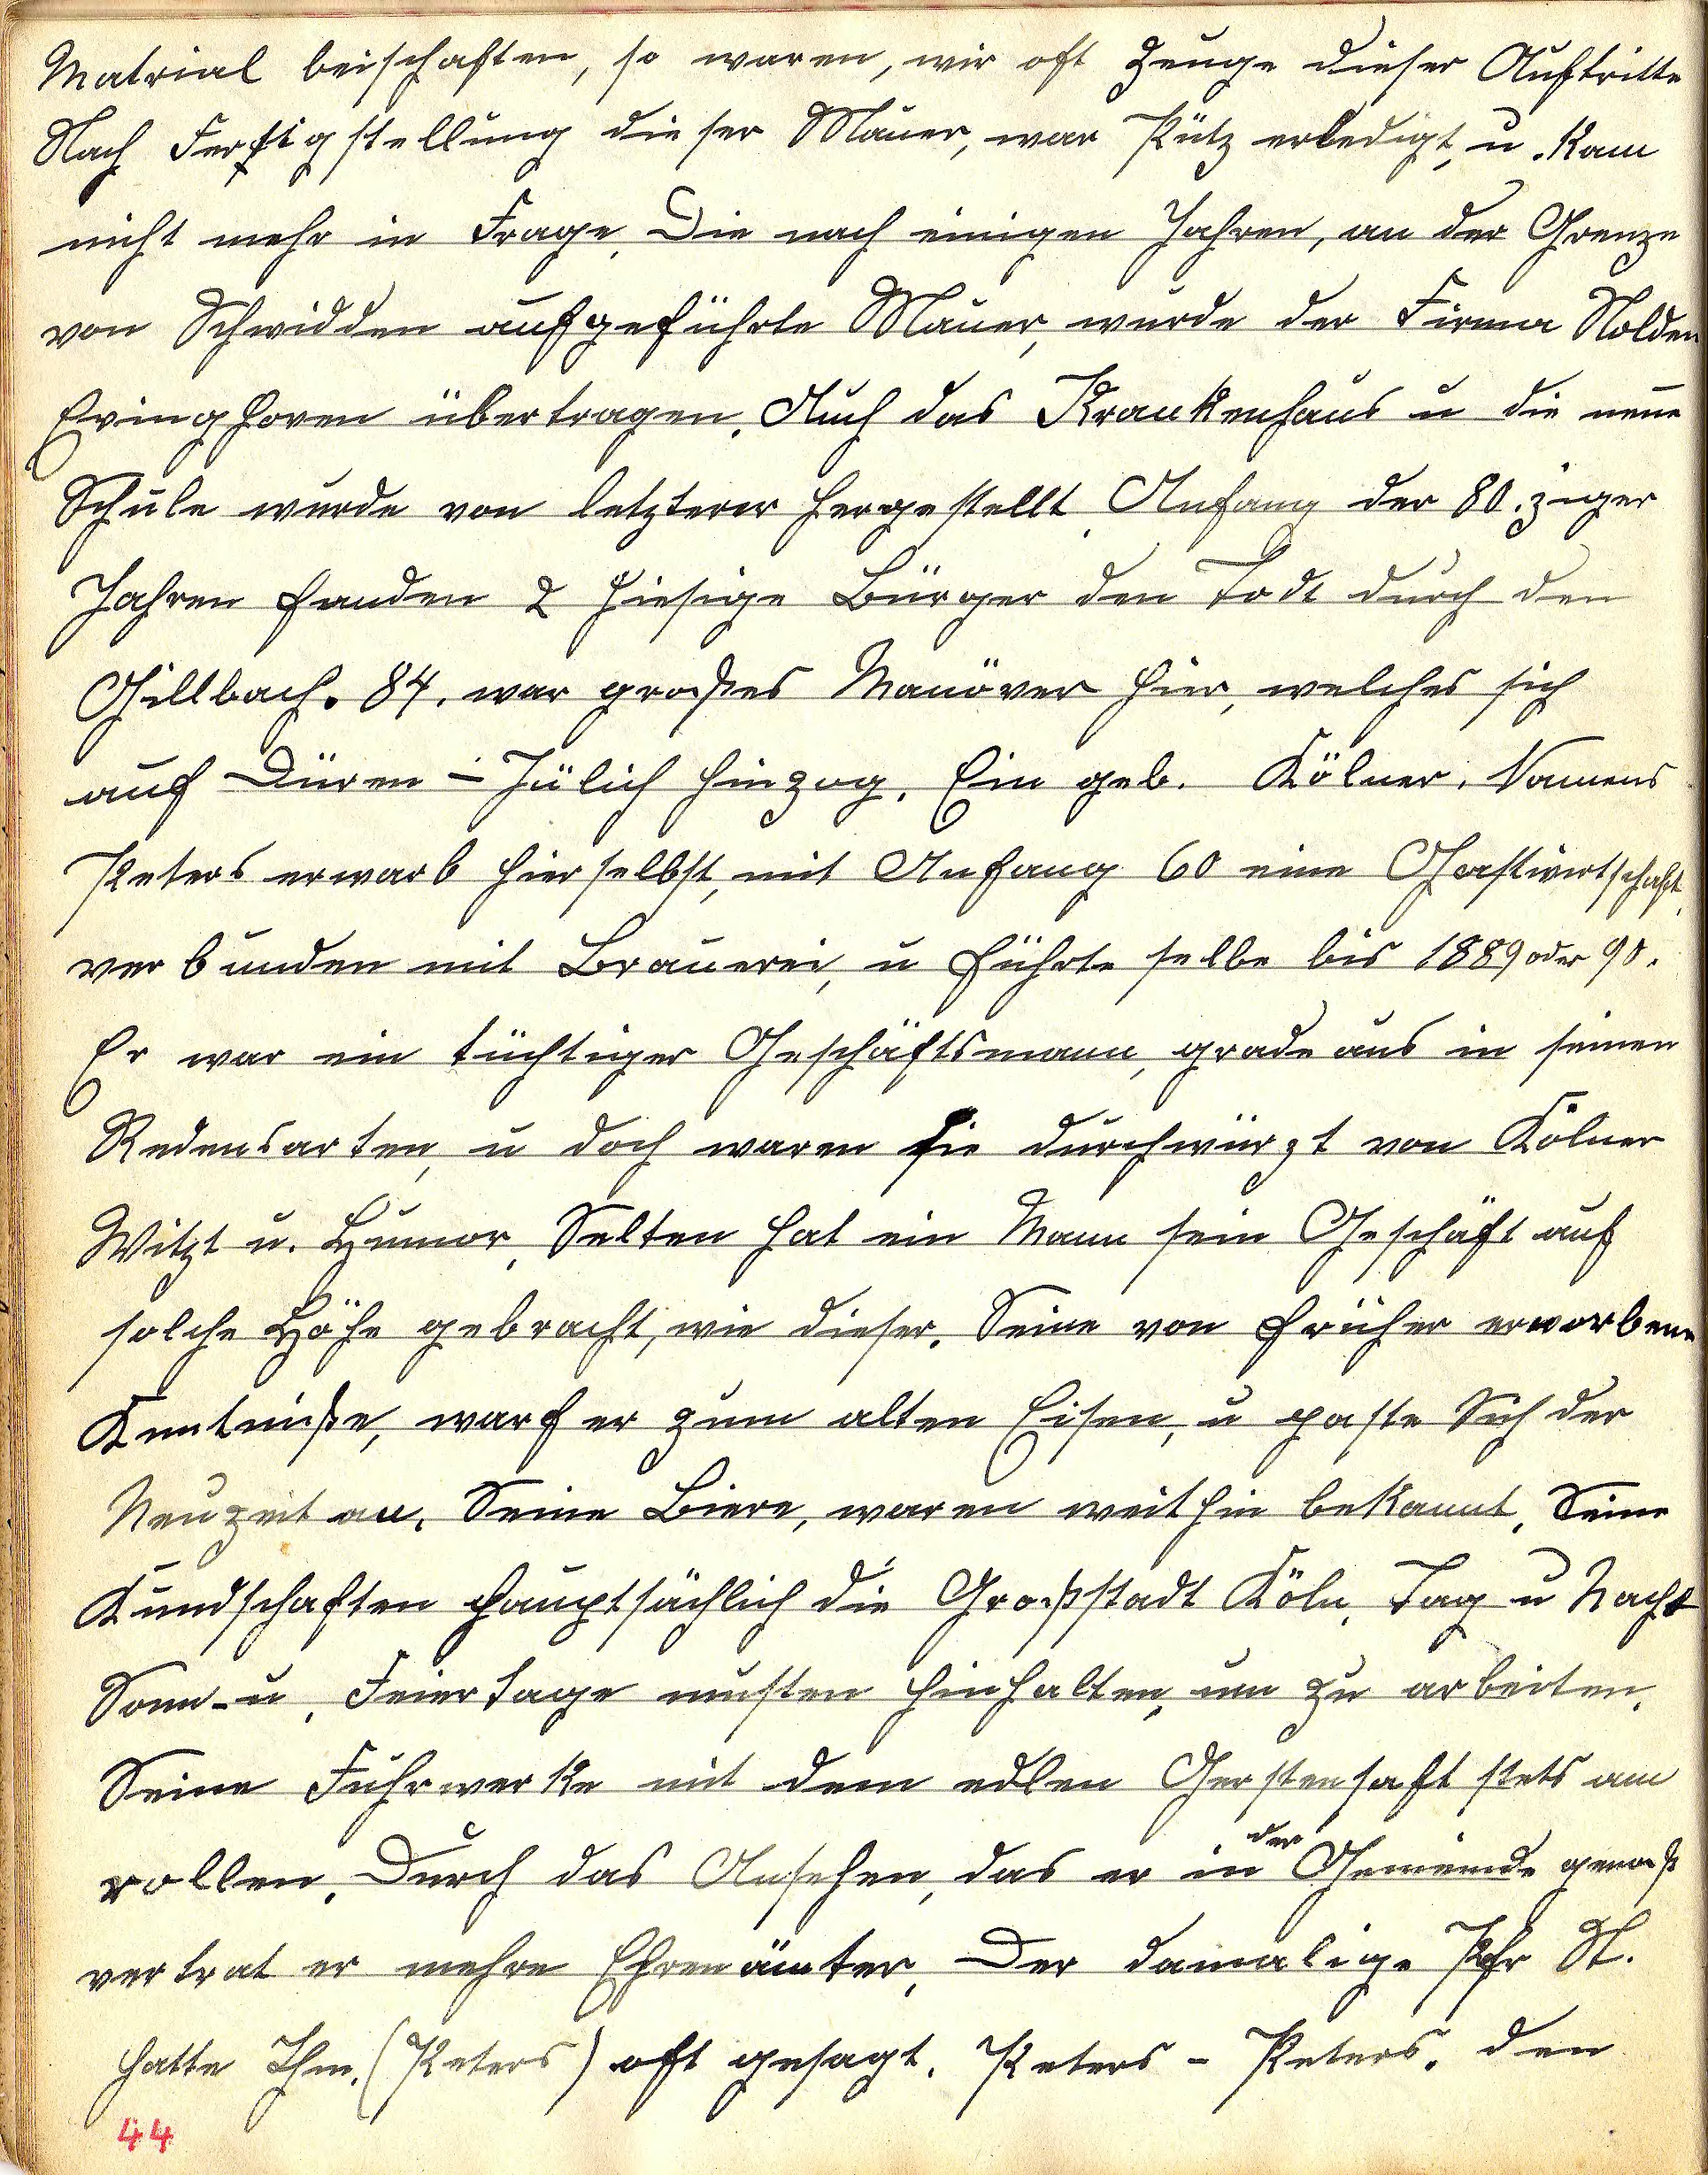 Matrial beischaften, so waren, wir oft Zeuge dieser Auftritte
Nach Fertigstellung dieser Mauer, war Pütz erledigt, u. kam
nicht mehr in Frage. Die nach einigen Jahren, an der Grenze
von Schwidden aufgeführte Mauer, wurde der Firma Nolden
Evinghoven übertragen. Auch das Krankenhaus u die neue
Schule wurde von letzterer hergestellt. Anfang der 80.ziger
Jahren fanden 2 hiesige Bürger den Todt durch den
Gillbach. 84. war großes Manöver hier, welches sich
auf Düren - Jülich hinzog. Ein geb. Kölner. Namens
Peters erwarb hierselbst, mit Anfang 60 eine Gastwirtschaft,
verbunden mit Brauerei, u führte selbe bis 1889 oder 90.
Er war ein tüchtiger Geschäftsmann, gradeaus in seinen
Redensarten, u doch waren sie durchwürzt von Kölner
Witzt u. Humor. Selten hat ein Mann sein Geschäft auf
solche Höhe gebracht, wie dieser. Seine von früher erworbene
Kentniße, warf er zum alten Eisen, u paste Sich der
Neuzeit an. Seine Biere, waren weithin bekannt. Seine
Kundschaften hauptsächlich die Großstadt Köln. Tag u Nacht
Sonn- u. Feiertage musten hinhalten, um zu arbeiten.
Seine Fuhrwerke mit dem edlen Gerstensaft stets am
rollen. Durch das Ansehen, das er in der Gemeinde genoß
vertrat er mehre Ehrenämter. Der damalige Pfr St.
hatte Ihm. (Peters) oft gesagt. Peters - Peters. den
44